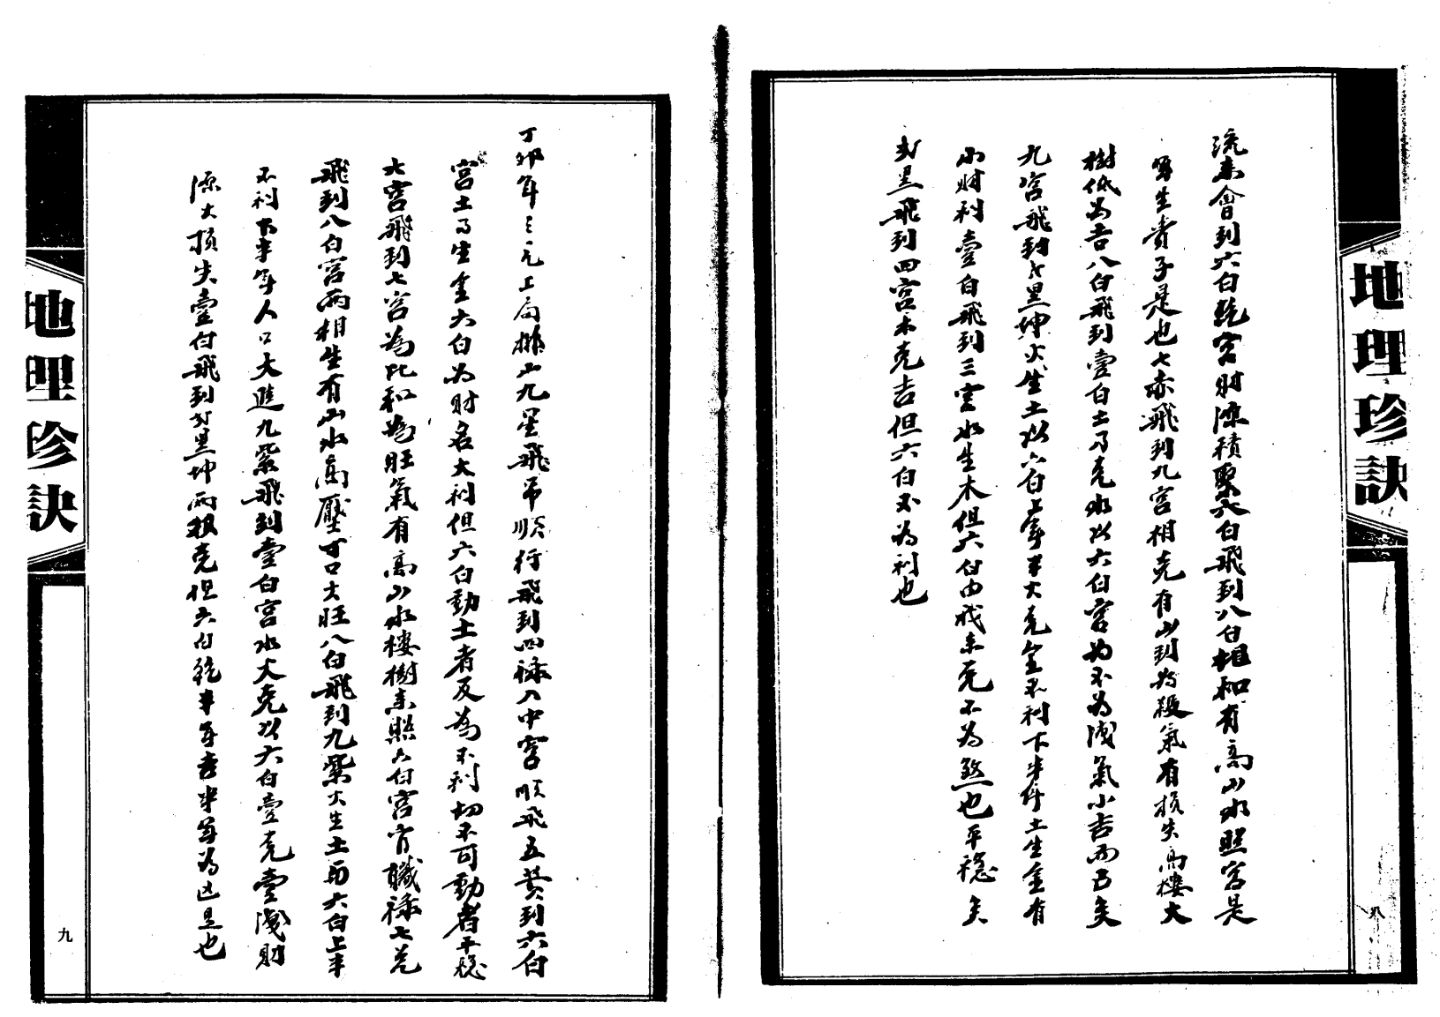 地理珍訣
八
流來會到六白乾宮財源積聚八白飛到八白相和有高山水照宮是
生貴子是也七赤飛到九宮相克有山到為殺氣有損失高樓大
樹低為吉八白飛到壹白土克水以六白宮為不為洩氣小吉而已矣
九宮飛到黑坤火生土以六白上半年大克金不利下半年土生金有
小財利壹白飛到三宮水生木但六白由我來克不為煞也平穩矣
黑飛到四宮木克吉但六白不為利也
丁卯年三元上局排山九星飛吊順行飛到四祿入中宮順飛五黃到六白
宮土生金六白為財名大利但六白動土者反為不利切不可動者平穩
六宮飛到七宮為比和為旺氣有高山水樓樹來照六白宮官職祿七兌
飛到八白宮兩相生有山水高壓大旺八白飛到九紫火生土六白上半
不利下半年人口大進九紫飛到壹白宮水火克以六白壹克壹洩財
源大損失壹白飛到黑坤兩相克但六白乾半年吉半年為凶是也
地理珍訣
九